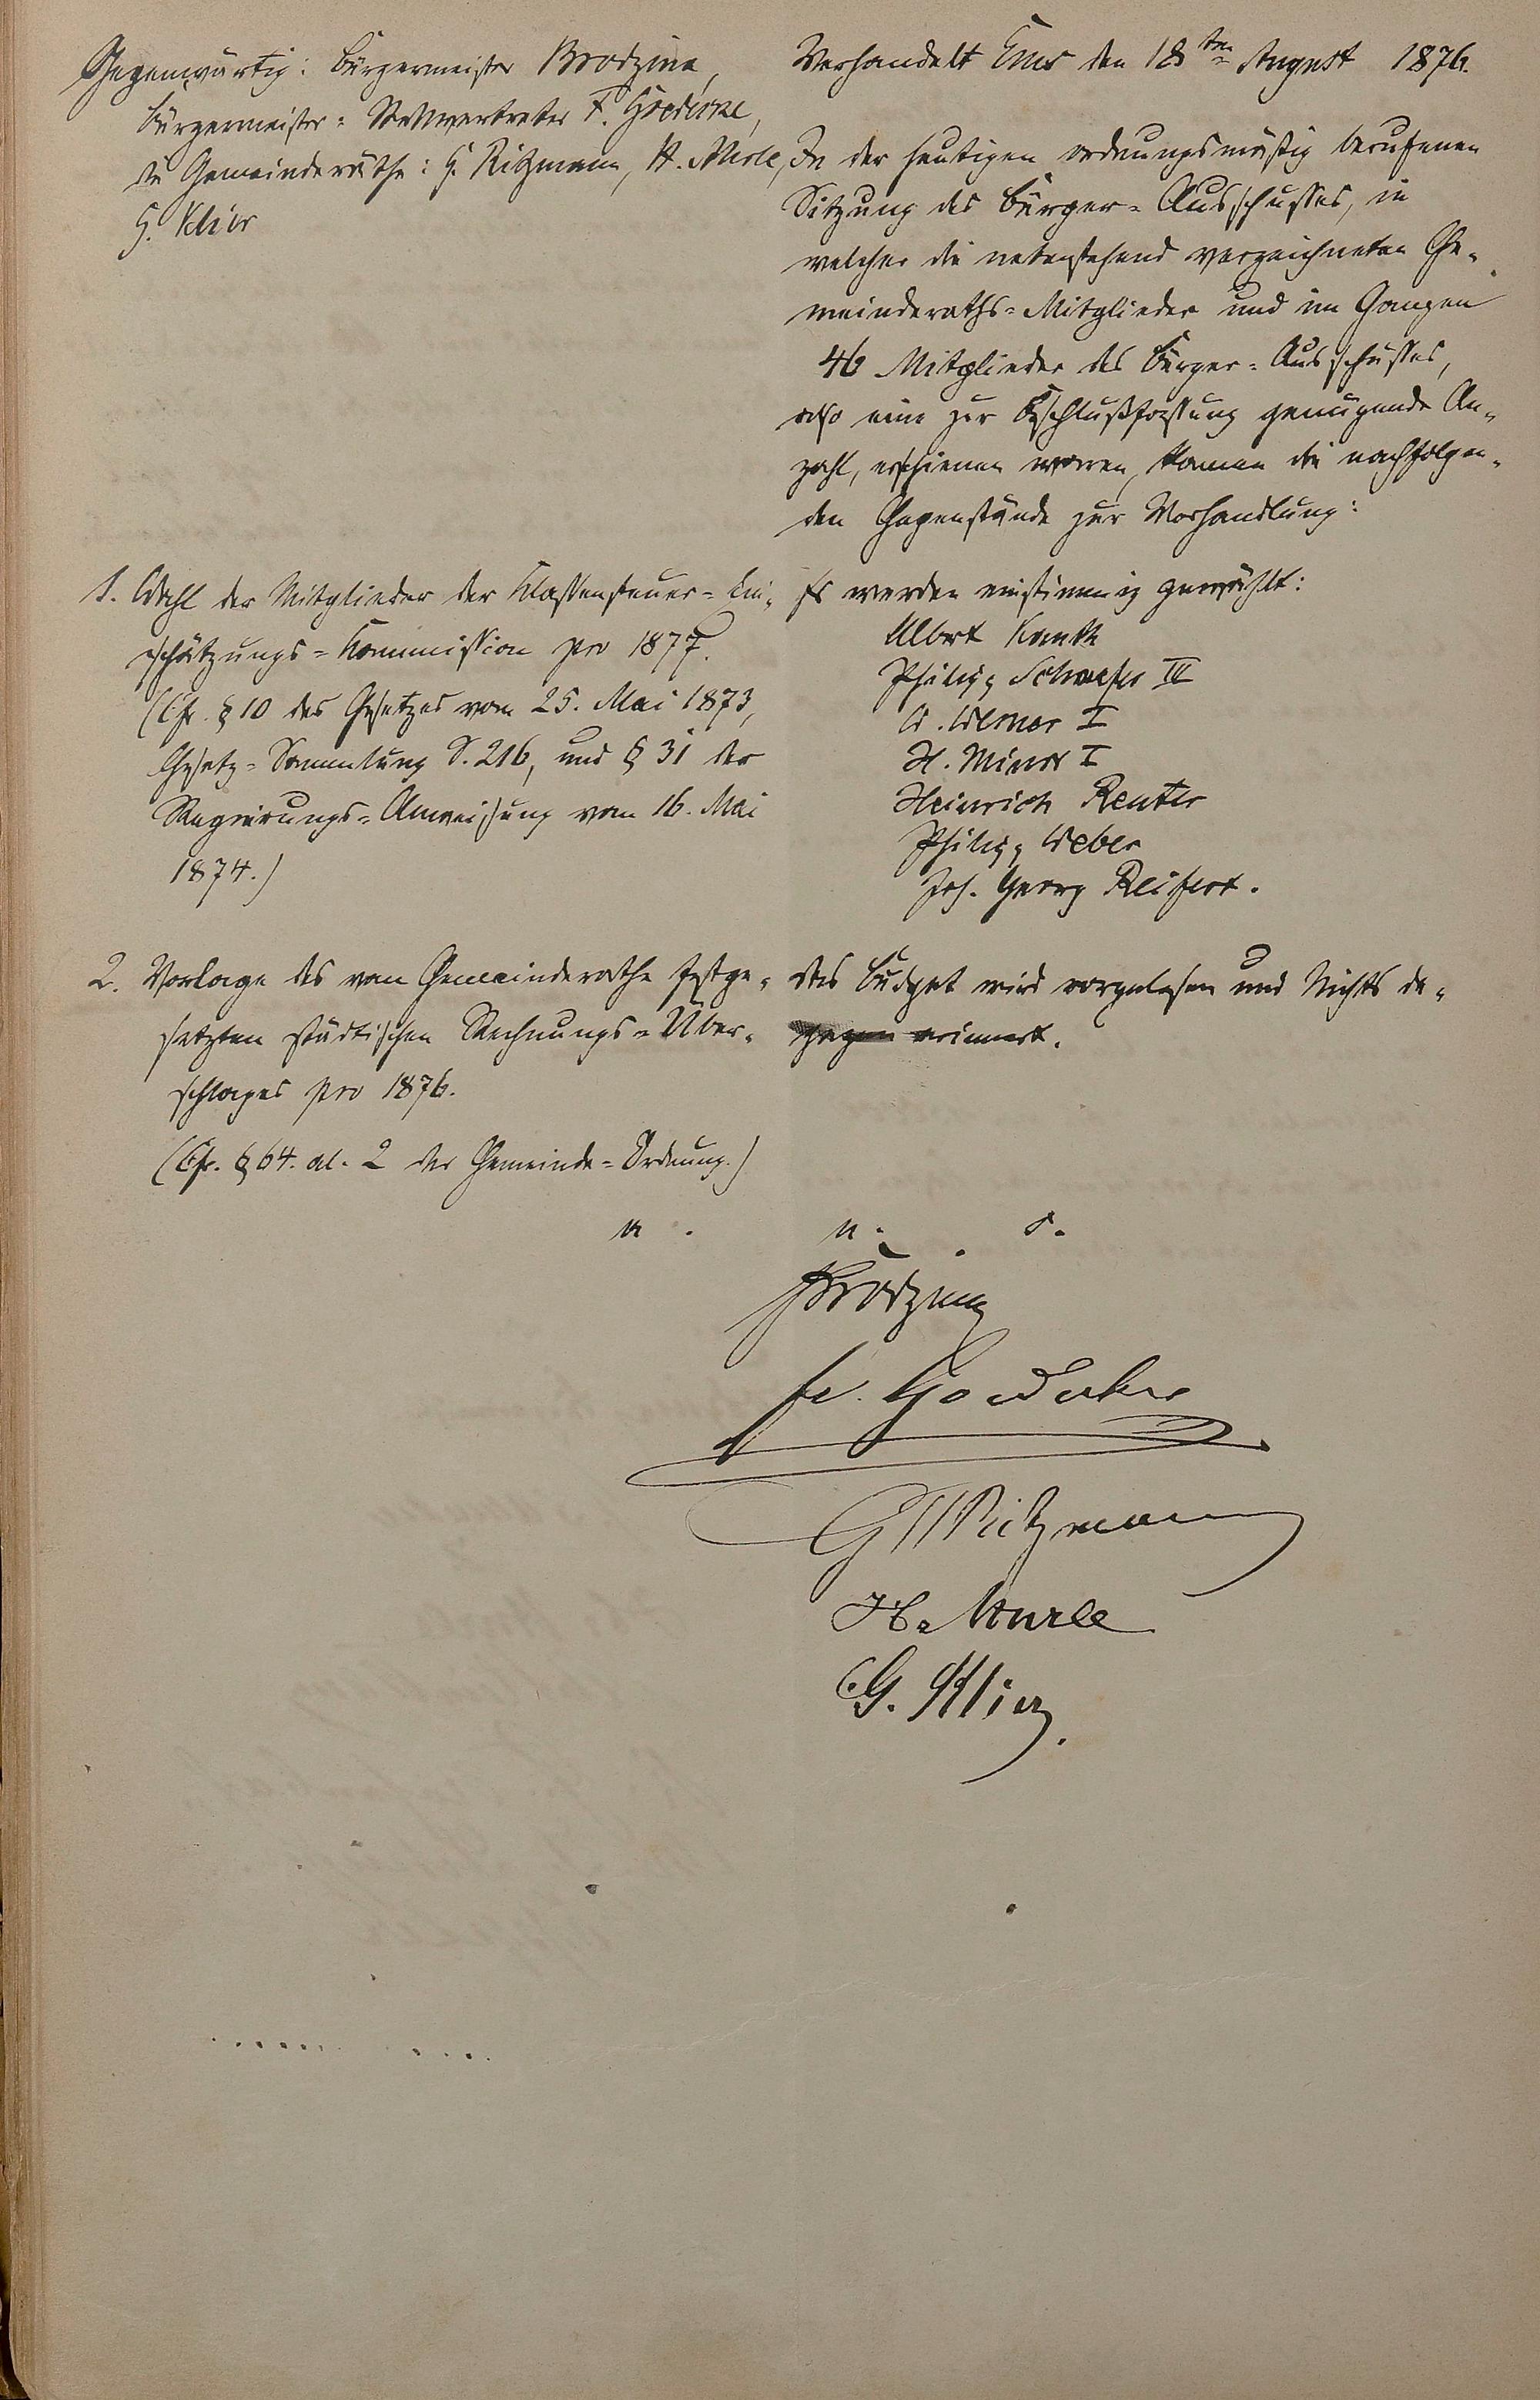 Gegenwärtig: Bürgermeister Brodzina,
Bürgermeister-Stellvertreter F. Goedecke,
die Gemeinderäthe: G. Ritzmann, H. Merle,
G. Klier
Verhandelt Ems den 18ten August 1876.
In der heutigen ordnungsmäßig berufenen
Sitzung des Bürger-Ausschusses, in
welcher die nebenstehend verzeichneten Ge-
meinderaths-Mitglieder und im Ganzen
46 Mitglieder des Bürger-Ausschusses,
also eine zur Beschlußfassung genügende An-
zahl, erschienen waren, kamen die nachfolgen-
den Gegenstände zur Verhandlung:
1. Wahl der Mitglieder der Klassensteuer-Ein-
schätzungs-Kommission pro 1877.
(Cfr. § 10 des Gesetzes vom 25. Mai 1873,
Gesetz-Sammlung S. 216, und § 31 der
Regierungs-Anweisung vom 16. Mai
1874.)
Es werden einstimmig gewählt:
Albert Kauth
Philipp Schaefer III
W. Werner I
H. Minor I
Heinrich Reuter
Philipp Weber
Joh. Georg Reifert.
2. Vorlage des vom Gemeinderathe festge-
setzten städtischen Rechnungs-Über-
schlages pro 1876.
(Cfr. § 64. al. 2 der Gemeinde-Ordnung.)
Das Budget wird vorgelesen und Nichts da-
gegen erinnert.
a. u. s.
Brodzina
Fr. Goedecke
G Ritzmann
H. Merle
G. Klier.